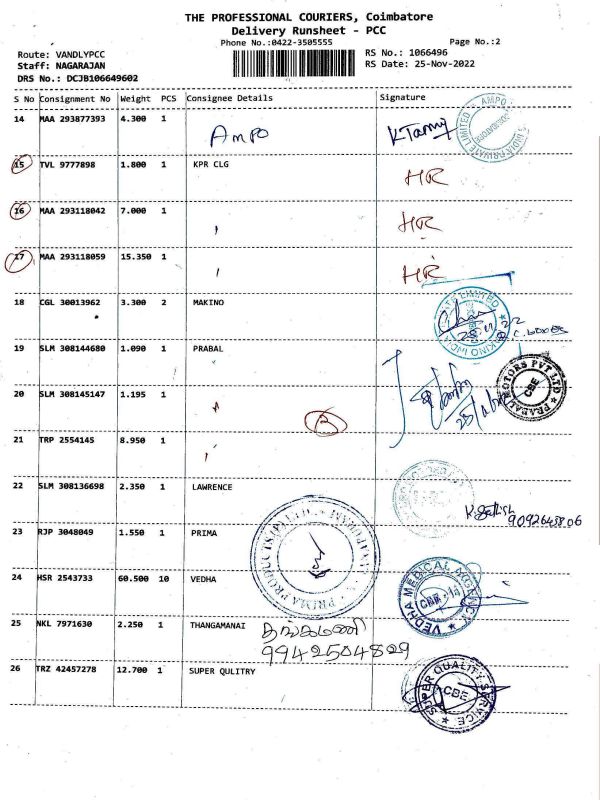 THE PROFESSIONAL COURIERS, Coimbatore
Delivery Runsheet - PCC
Phone No.:0422-3505555 Page No.:2
Route: VANDLYPCC RS No.: 1066496
Staff: NAGARAJAN RS Date: 25-Nov-2022
DRS No.: DCJB106649602
S No Consignment No Weight PCS Consignee Details Signature
14 MAA 293877393 4.300 1 AMPO
15 TVL 9777898 1.800 1 KPR CLG HR
16 MAA 293118042 7.000 1 HR
17 MAA 293118059 15.350 1 HR
18 CGL 30013962 3.300 2 MAKINO
19 SLM 308144680 1.090 1 PRABAL
20 SLM 308145147 1.195 1
PRABAL MOTORS PVT LTD CBE
3
21 TRP 2554145 8.950 1
22 SLM 308136698 2.350 1 LAWRENCE
9092645806
23 RJP 3048049 1.550 1 PRIMA
24 HSR 2543733 60.500 10 VEDHA
VEDHA MEDICAL AGENCY CBE-14
25 NKL 7971630 2.250 1 THANGAMANAI தங்கமணி
9942504829
26 TRZ 42457278 12.700 1 SUPER QULITRY
SUPER QUALITY SERVICE CBE